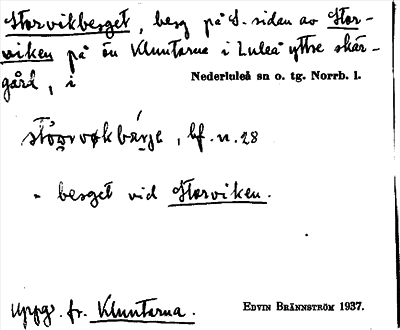 Storvikbesget, besg på S. sidan av Stor-
viken på ön Kluntarna i Luleå yttre skär-
gård, i
Nederluleå sn o. tg. Norrb. l.
bf. n. 28
= besget vid Storviken.
Uppg. fr. Kluntarna.
EDVIN BRÄNNSTRÖM 1937.